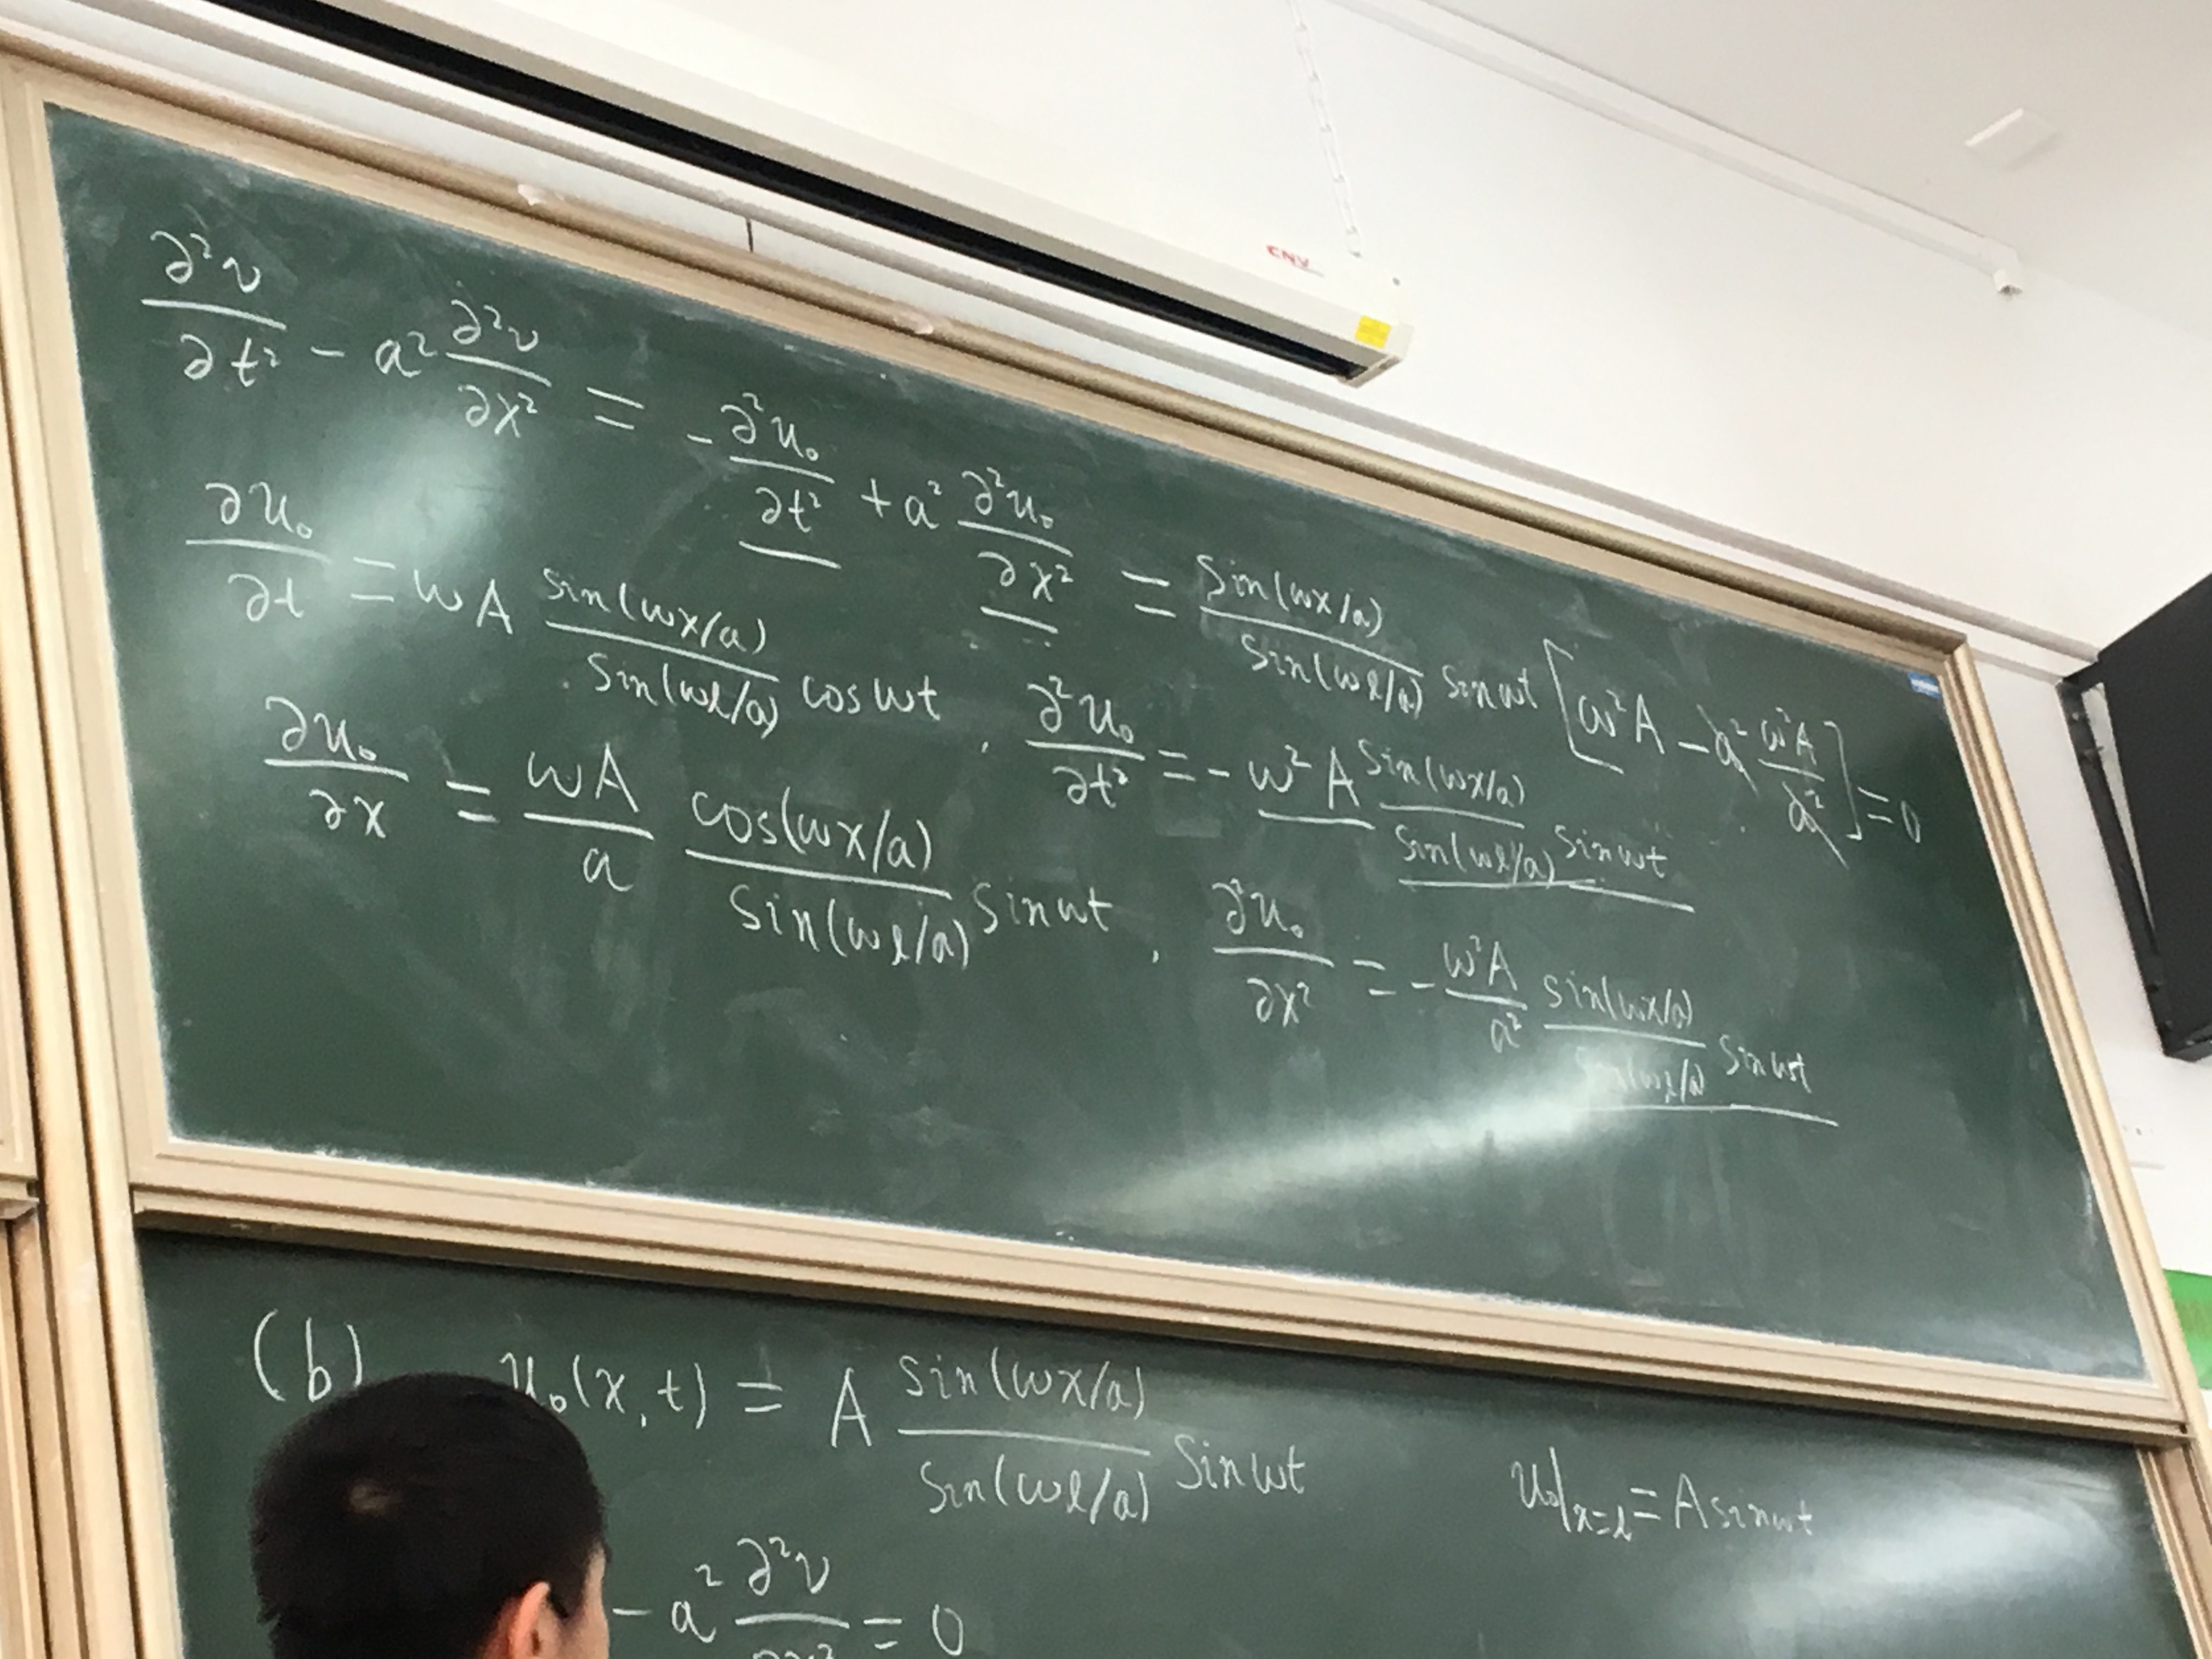 CNV
∂²v/∂t² - a² ∂²v/∂x² = - ∂²u₀/∂t² + a² ∂²u₀/∂x² = sin(ωx/a)/sin(ωl/a) sinωt [ω²A - a² ω²A/a²] = 0
∂u₀/∂t = ωA sin(ωx/a)/sin(ωl/a) cosωt , ∂²u₀/∂t² = - ω²A sin(ωx/a)/sin(ωl/a) sinωt
∂u₀/∂x = ωA/a cos(ωx/a)/sin(ωl/a) sinωt , ∂²u₀/∂x² = - ω²A/a² sin(ωx/a)/sin(ωl/a) sinωt
(b) u₀(x,t) = A sin(ωx/a)/sin(ωl/a) sinωt u₀|x=l = A sinωt
- a² ∂²v/∂x² = 0